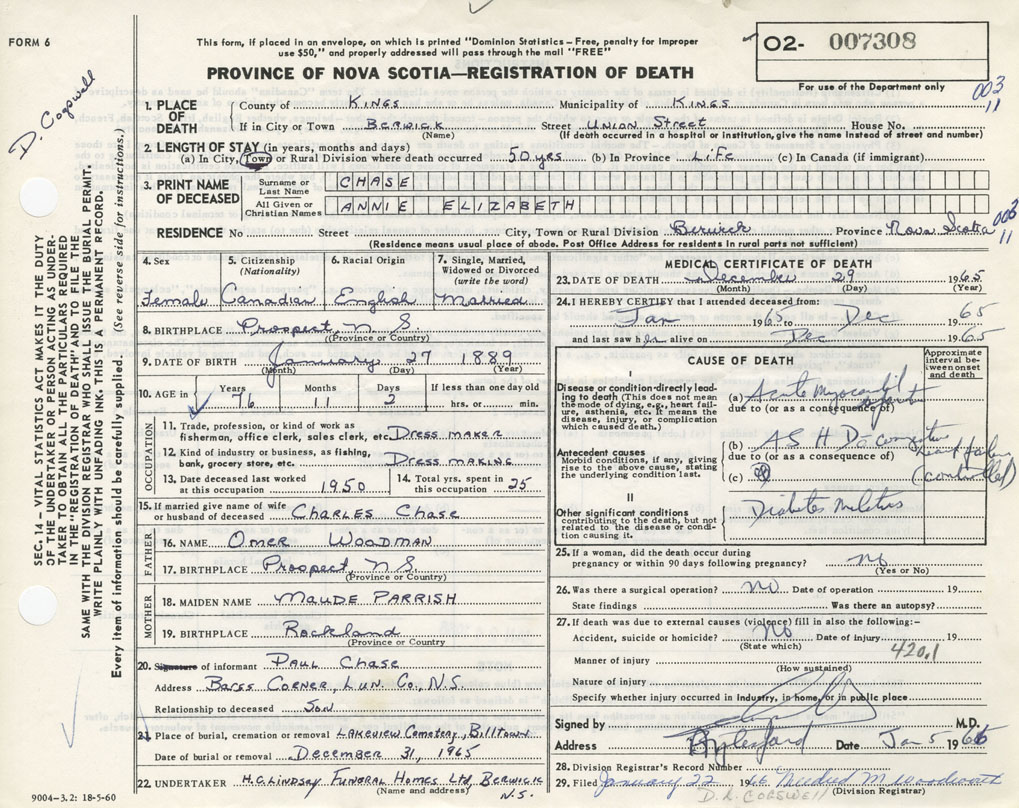 FORM 6
This form, if placed in an envelope, on which is printed "Dominion Statistics – Free, penalty for improper
use $50," and properly addressed will pass through the mail "FREE"
PROVINCE OF NOVA SCOTIA—REGISTRATION OF DEATH
O2- 007308
For use of the Department only
003
11
D. Cogswell
SEC. 14 – VITAL STATISTICS ACT MAKES IT THE DUTY
OF THE UNDERTAKER OR PERSON ACTING AS UNDER-
TAKER TO OBTAIN ALL THE PARTICULARS REQUIRED
IN THE "REGISTRATION OF DEATH" AND TO FILE THE
SAME WITH THE DIVISION REGISTRAR WHO SHALL ISSUE THE BURIAL PERMIT.
WRITE PLAINLY WITH UNFADING INK. THIS IS A PERMANENT RECORD.
Every item of information should be carefully supplied. (See reverse side for instructions.)
1. PLACE OF DEATH County of KINGS Municipality of KINGS
If in City or Town BERWICK Street UNION Street House No.
(Name) (If death occurred in a hospital or institution, give the name instead of street and number)
2. LENGTH OF STAY (in years, months and days)
(a) In City, Town or Rural Division where death occurred 50 yrs (b) In Province LIFE (c) In Canada (if immigrant)
3. PRINT NAME OF DECEASED Surname or Last Name CHASE
All Given or Christian Names ANNIE ELIZABETH
RESIDENCE No Street City, Town or Rural Division Berwick Province Nova Scotia
003
11
(Residence means usual place of abode. Post Office Address for residents in rural parts not sufficient)
4. Sex 5. Citizenship (Nationality) 6. Racial Origin 7. Single, Married, Widowed or Divorced (write the word)
Female Canadian English Married
8. BIRTHPLACE Prospect, N.S.
(Province or Country)
9. DATE OF BIRTH January 27 1889
(Month) (Day) (Year)
10. AGE in Years Months Days If less than one day old
76 11 2 hrs. or min.
OCCUPATION
11. Trade, profession, or kind of work as
fisherman, office clerk, sales clerk, etc. Dress maker
12. Kind of industry or business, as fishing,
bank, grocery store, etc. Dress making
13. Date deceased last worked at this occupation 1950 14. Total yrs. spent in this occupation 25
15. If married give name of wife
or husband of deceased CHARLES Chase
FATHER
16. NAME OMER WOODMAN
17. BIRTHPLACE Prospect, N.S.
(Province or Country)
MOTHER
18. MAIDEN NAME MAUDE PARRISH
19. BIRTHPLACE Rockland
(Province or Country)
20. Signature of informant PAUL Chase
Address BARSS CORNER, LUN. CO., N.S.
Relationship to deceased SON
21. Place of burial, cremation or removal LAKEVIEW Cemetery, Billtown
Date of burial or removal December 31, 1965
22. UNDERTAKER H.C. LINDSAY FUNERAL HOMES Ltd, BERWICK
(Name and address) N.S.
9004-3.2: 18-5-60
MEDICAL CERTIFICATE OF DEATH
23. DATE OF DEATH December 29 1965
(Month) (Day) (Year)
24. I HEREBY CERTIFY that I attended deceased from:
Jan 1965 to Dec 1965
and last saw her alive on Dec 1965
CAUSE OF DEATH
Approximate interval between onset and death
I
Disease or condition directly lead-
ing to death (This does not mean
the mode of dying, e.g., heart fail-
ure, asthenia, etc. It means the
disease, injury, or complication
which caused death.)
(a) Acute myocardial
due to (or as a consequence of)
Antecedent causes
Morbid conditions, if any, giving
rise to the above cause, stating
the underlying condition last.
(b) A S H D
due to (or as a consequence of)
(c) (controlled)
II
Other significant conditions
contributing to the death, but not
related to the disease or condi-
tion causing it.
Diabetes Melitus
25. If a woman, did the death occur during
pregnancy or within 90 days following pregnancy? no
(Yes or No)
26. Was there a surgical operation? no Date of operation 19
State findings Was there an autopsy?
27. If death was due to external causes (violence) fill in also the following:–
Accident, suicide or homicide? No Date of injury 19
(State which)
420.1
Manner of injury
(How sustained)
Nature of injury
Specify whether injury occurred in industry, in home, or in public place
Signed by M.D.
Address Aylesford Date Jan 5 1966
28. Division Registrar's Record Number
29. Filed January 22 1966 Mildred M. Woodworth
(Division Registrar)
D. L. COGSWELL